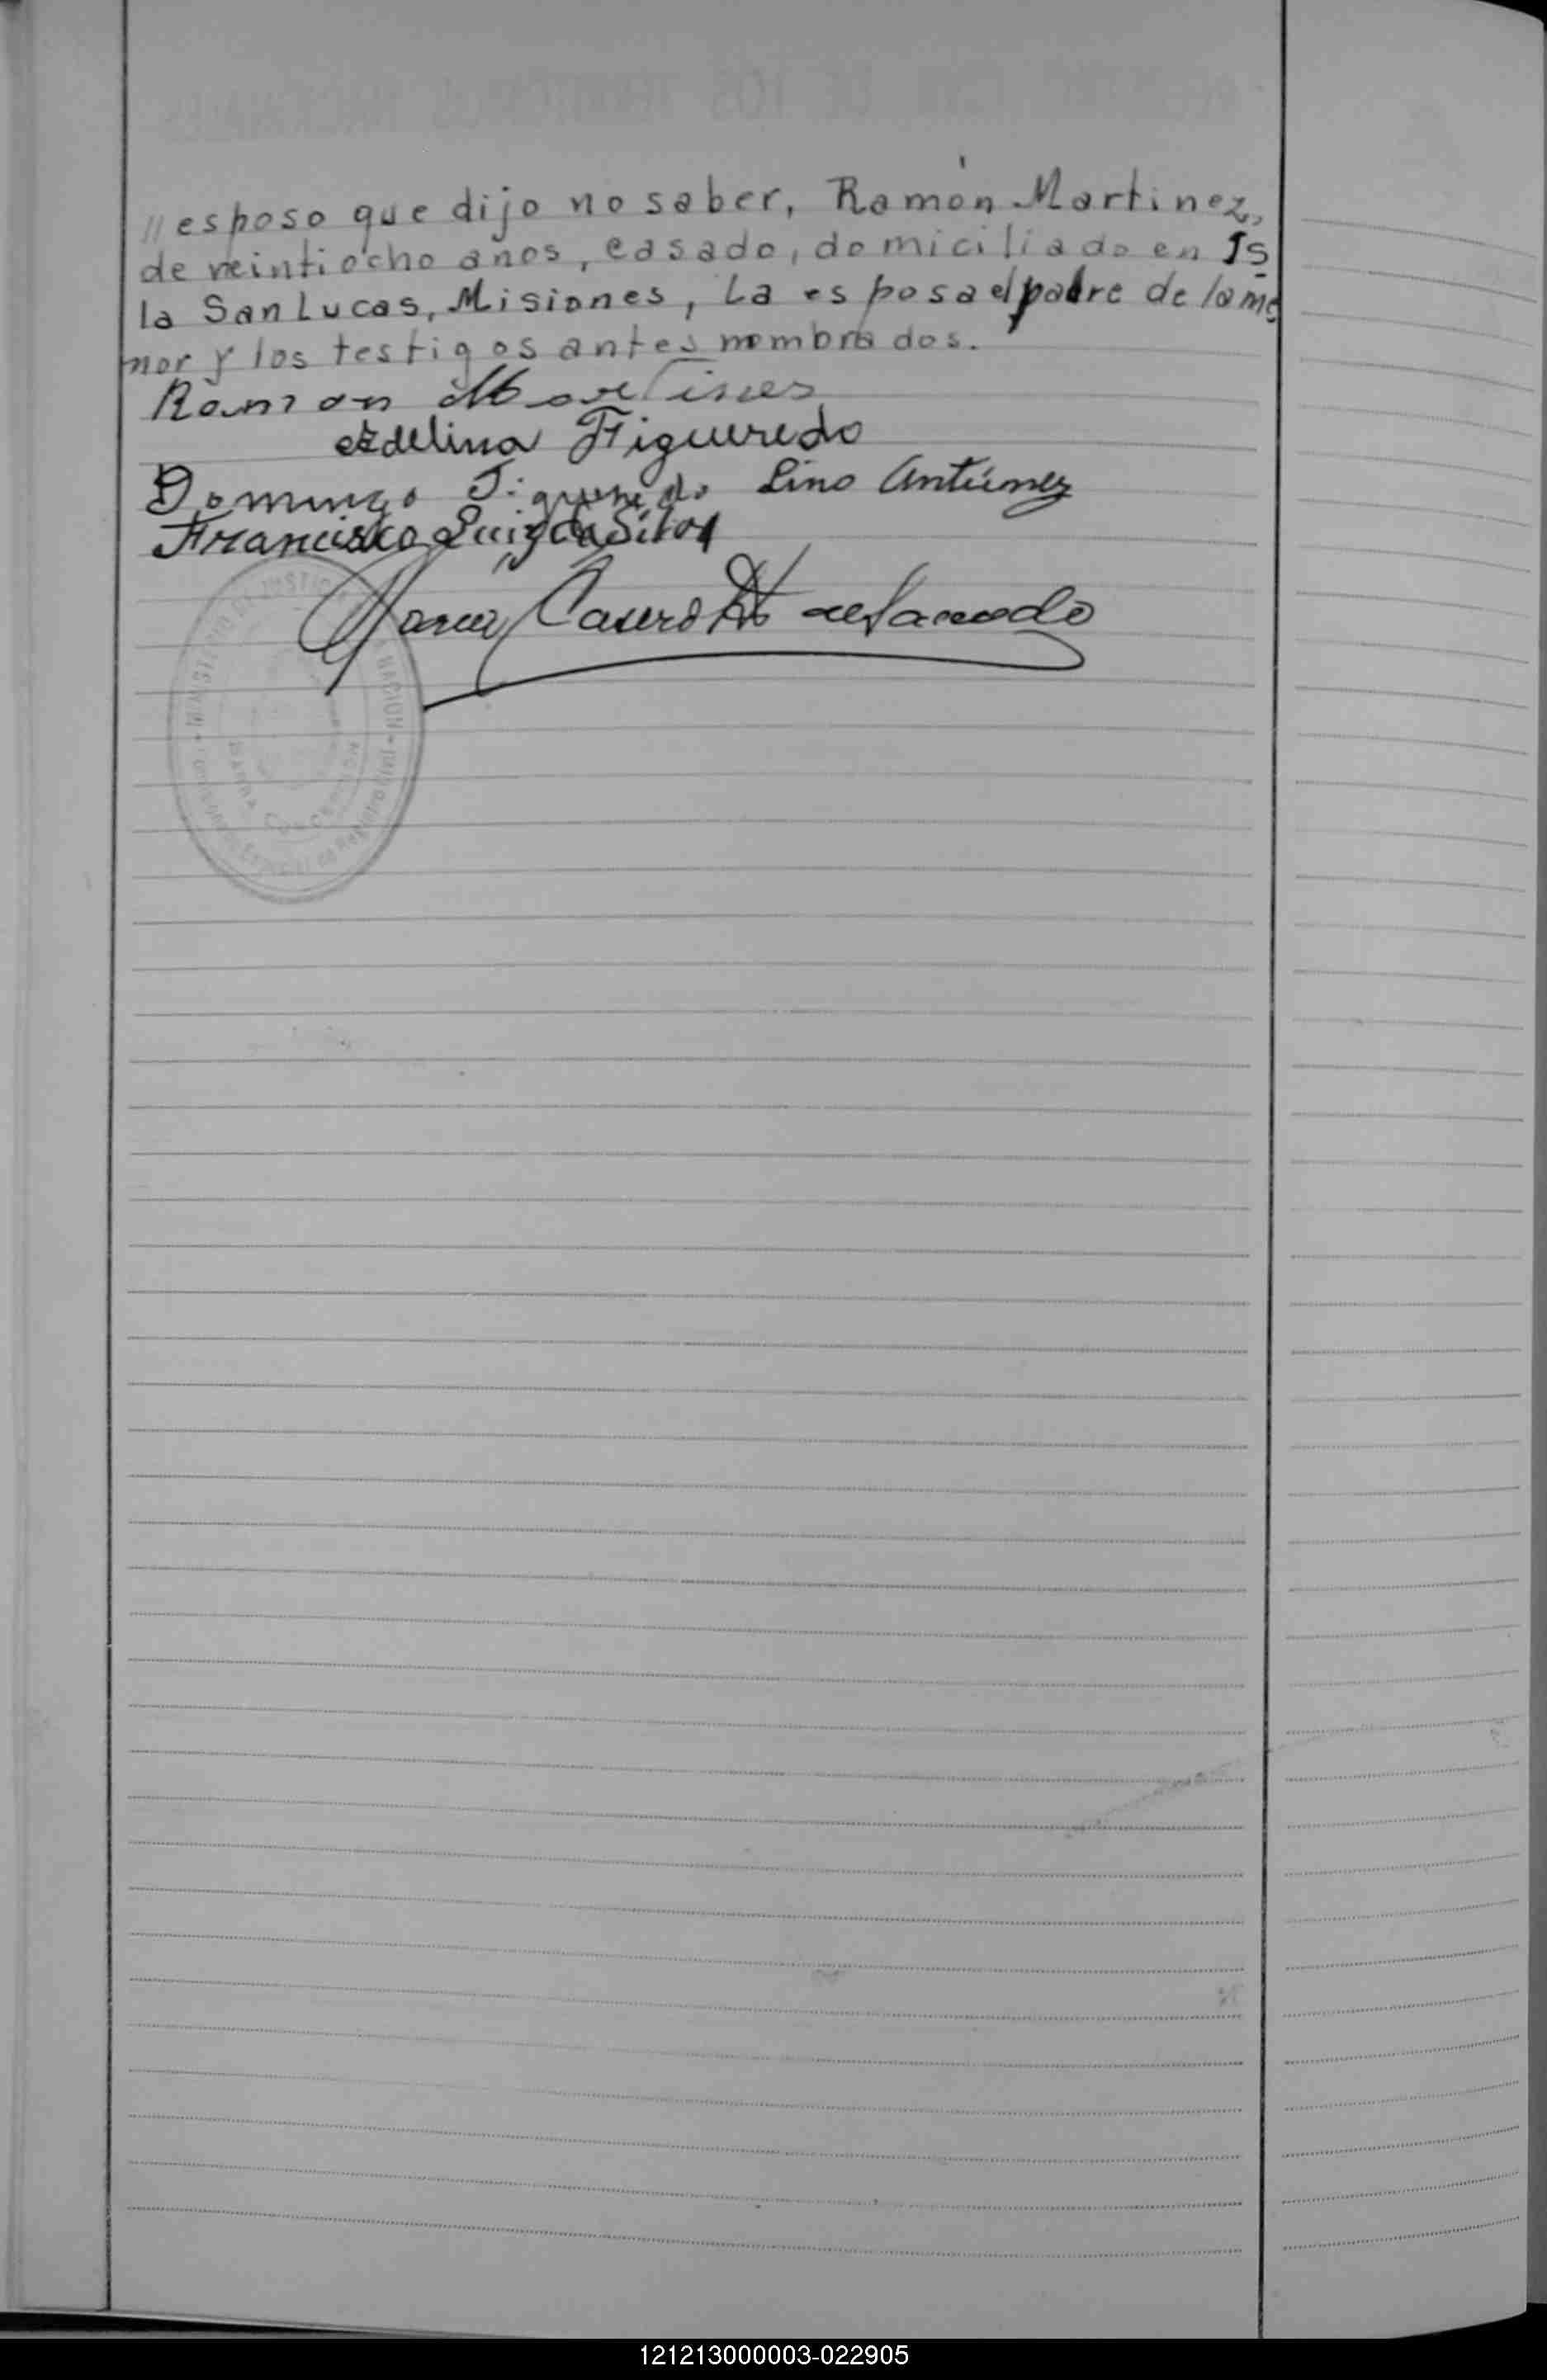 // esposo que dijo no saber, Ramón Martinez,
de veintiocho años, casado, domiciliado en Is
la San Lucas, Misiones, La esposa el padre de la me
nor y los testigos antes nombrados.
Ramon Martines
Edelina Figueredo
Domingo Figueredo Lino Antúnez
Francisco Luiz da Silva
María
NACION
121213000003-022905